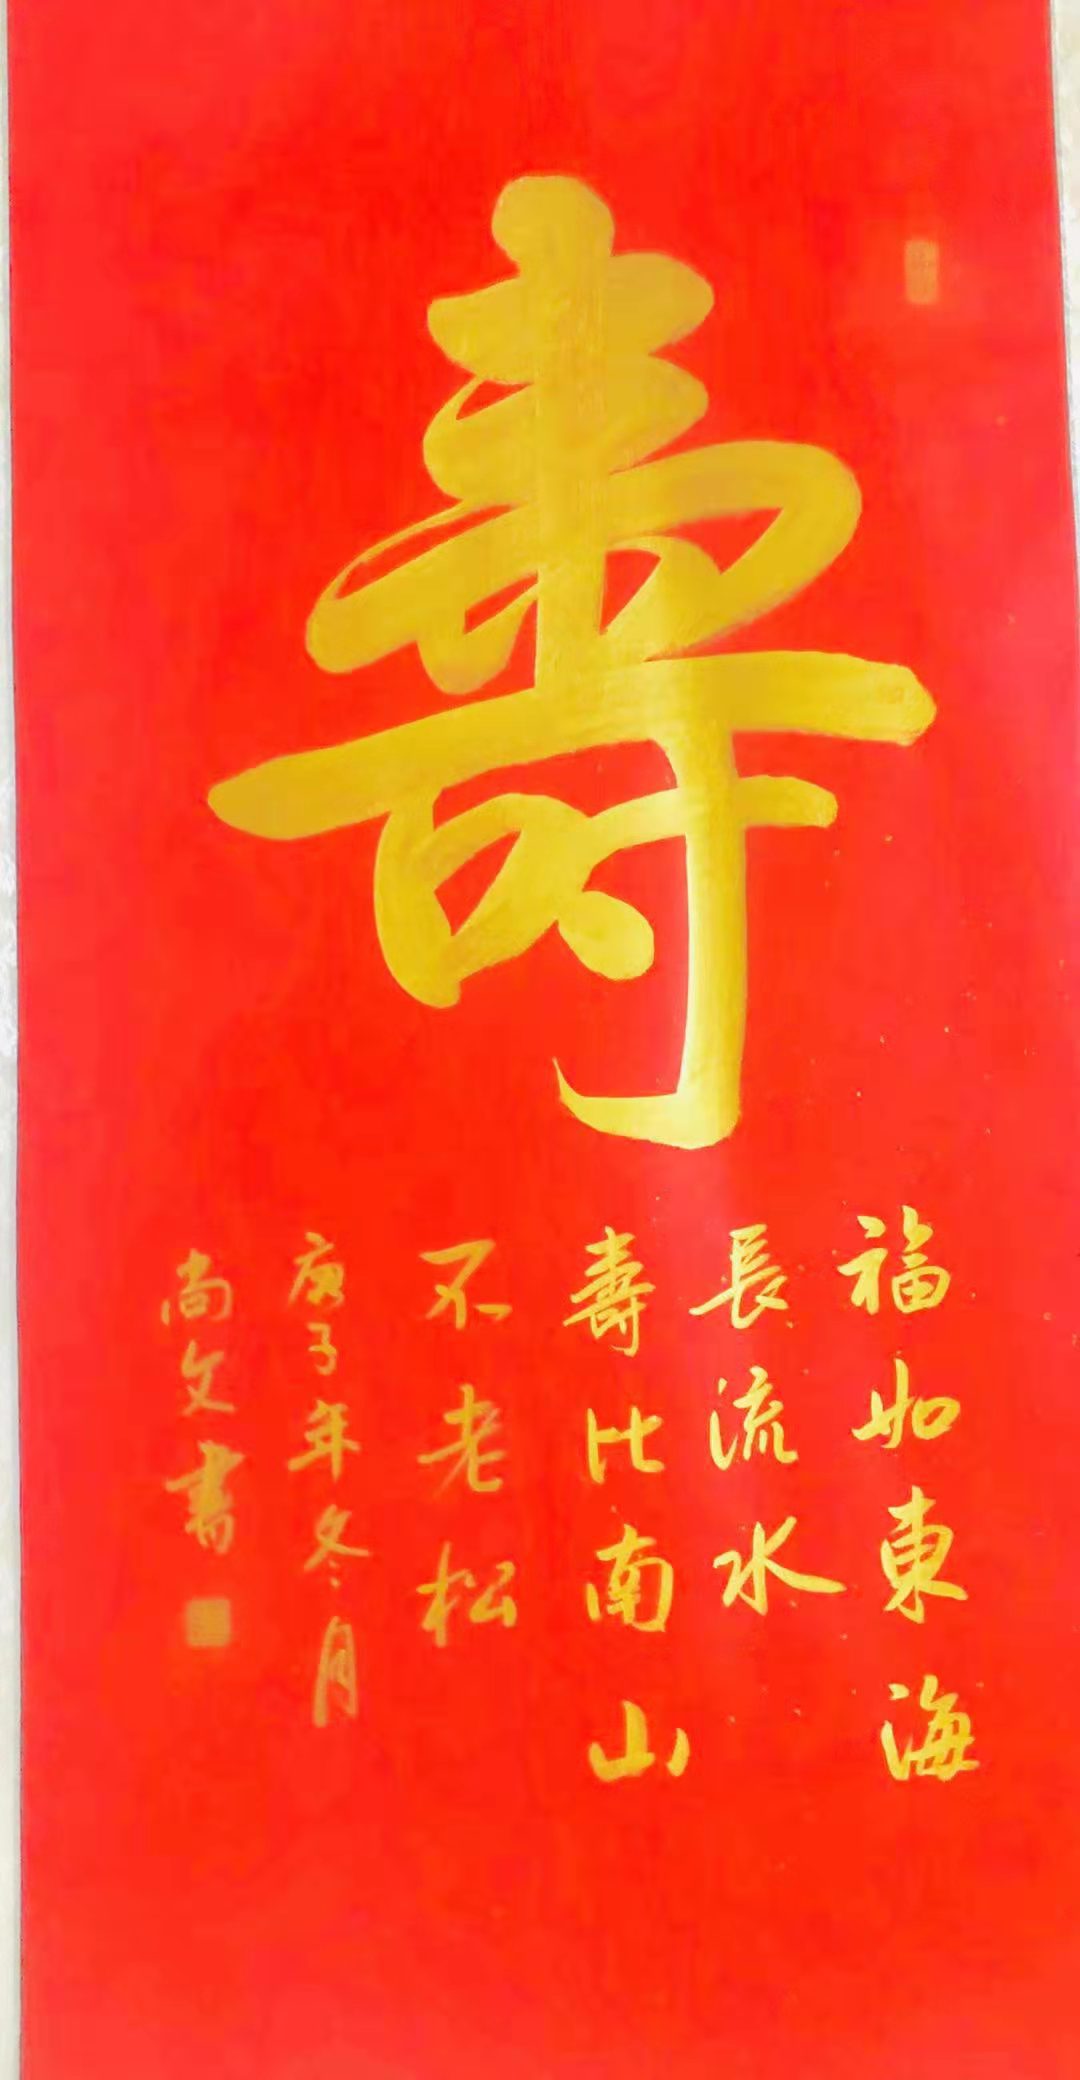 壽
福如東海
長流水
壽比南山
不老松
庚子年冬月
尚文書